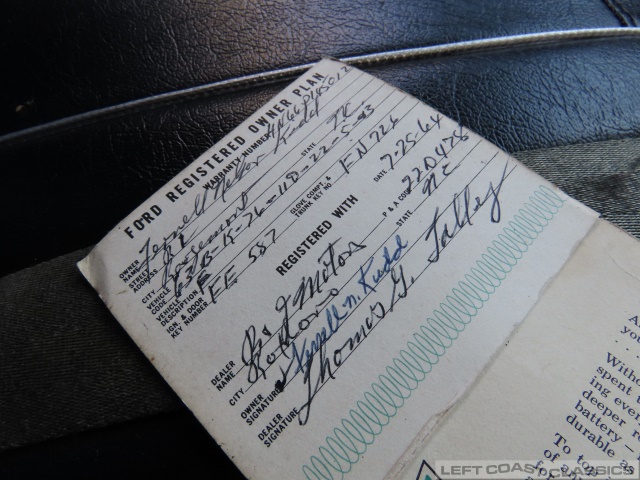 FORD REGISTERED OWNER PLAN
WARRANTY NUMBER
OWNER NAME Terrell Rudd
STREET ADDRESS
CITY STATE NC
VEHICLE CODE 63B-15-26-110-22-5-83
VEHICLE DESCRIPTION F
IGN. & DOOR KEY NUMBER FE 587 GLOVE COMPT. & TRUNK KEY NO. FN 726
REGISTERED WITH DATE 7-25-64
DEALER NAME Motor P & A CODE 22D478
CITY STATE NC
OWNER SIGNATURE Terrell N. Rudd
DEALER SIGNATURE Thomas G. Talley
A
you
Witho
spent
ing eve
deeper
battery—
durable as
To
of
LEFT COAST CLASSICS